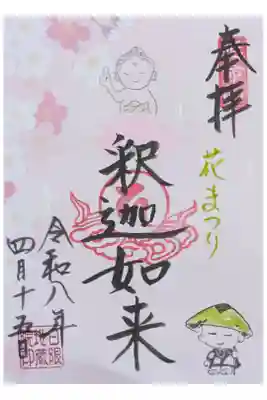 奉拝
花まつり
釈迦如来
令和八年
四月十五日